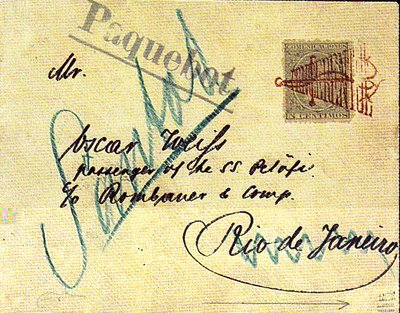 Paquebot
Mr.
Oscar Weiss
passenger of the SS. Petöfi
c/o Rombauer & Comp.
Rio de Janeiro